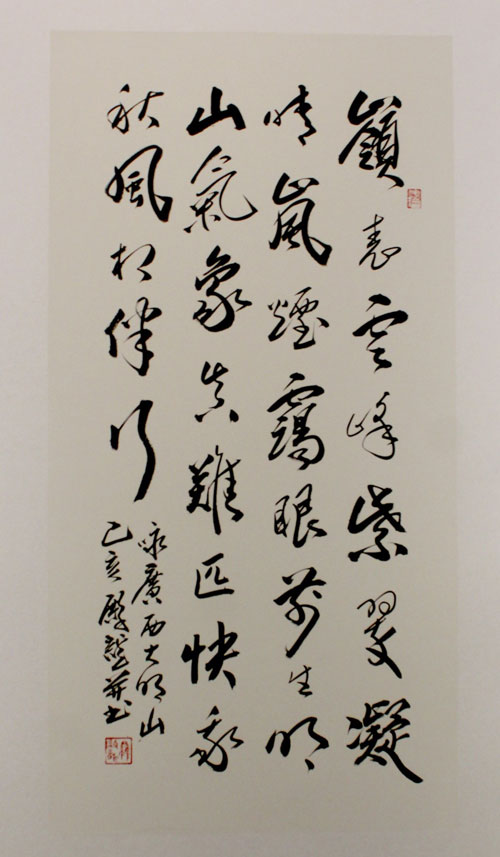 嶺表雲峰紫翠凝
晴嵐煙靄眼前生明
山氣象真難匹快我
秋風相伴行
咏廣西大明山
乙亥并書